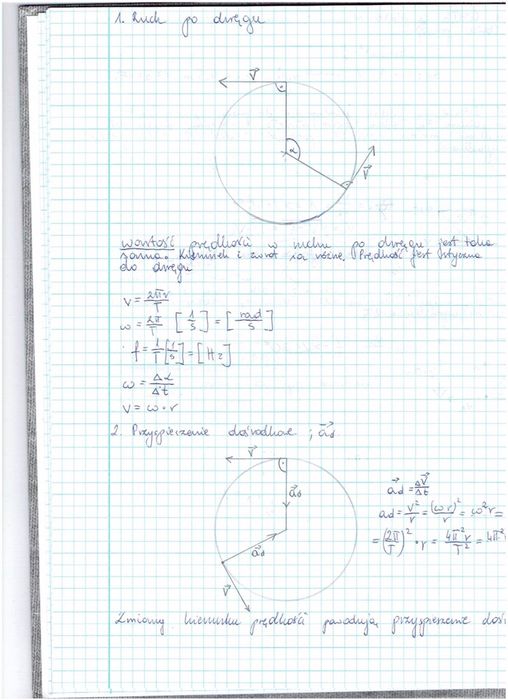 1. Ruch po okręgu
V⃗
α
V⃗
wartość prędkości w ruchu po okręgu jest taka
sama. Kierunek i zwrot są różne. Prędkość jest styczna
do okręgu
V = 2πr/T
ω = 2π/T [1/s] = [rad/s]
f = 1/T [1/s] = [Hz]
ω = Δα/Δt
V = ω · r
2. Przyspieszenie dośrodkowe ; a⃗d
V⃗
a⃗d
a⃗d
V⃗
a⃗d = ΔV⃗/Δt
ad = V²/r = (ωr)²/r = ω²r =
= (2π/T)² · r = 4π²r/T² = 4π²
Zmiany kierunku prędkości powodują przyspieszenie dośr